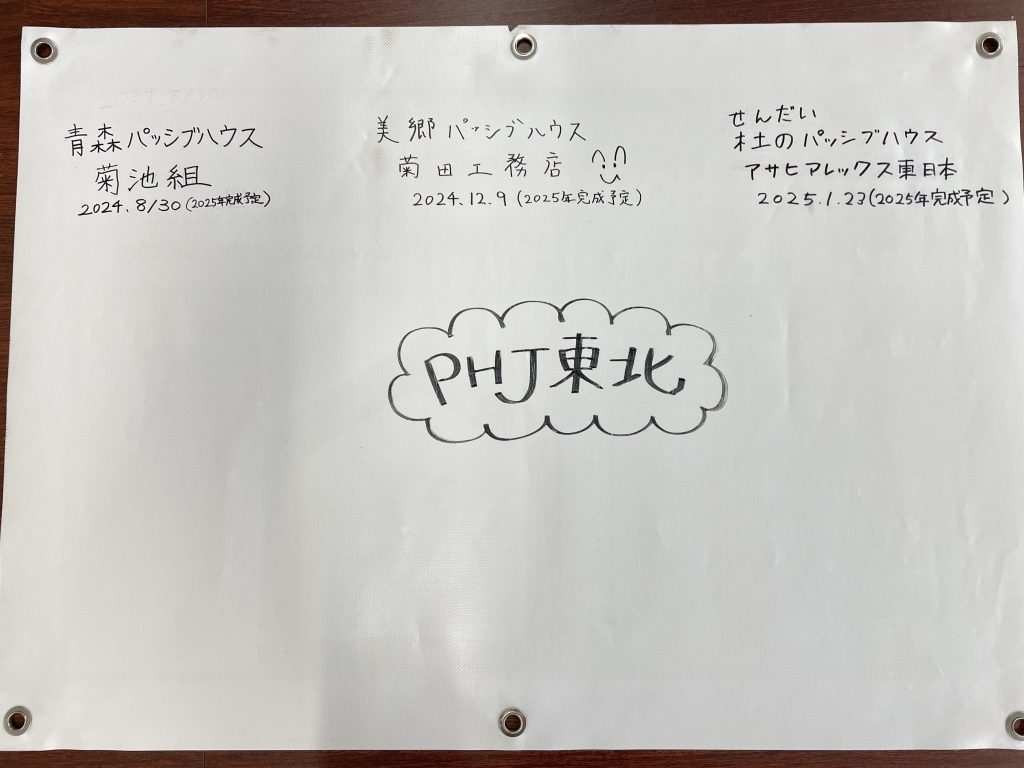 青森パッシブハウス
菊池組
2024.8/30(2025年完成予定)
美郷パッシブハウス
菊田工務店
2024.12.9(2025年完成予定)
せんだい
杜のパッシブハウス
アサヒアレックス東日本
2025.1.23(2025年完成予定)
PHJ東北